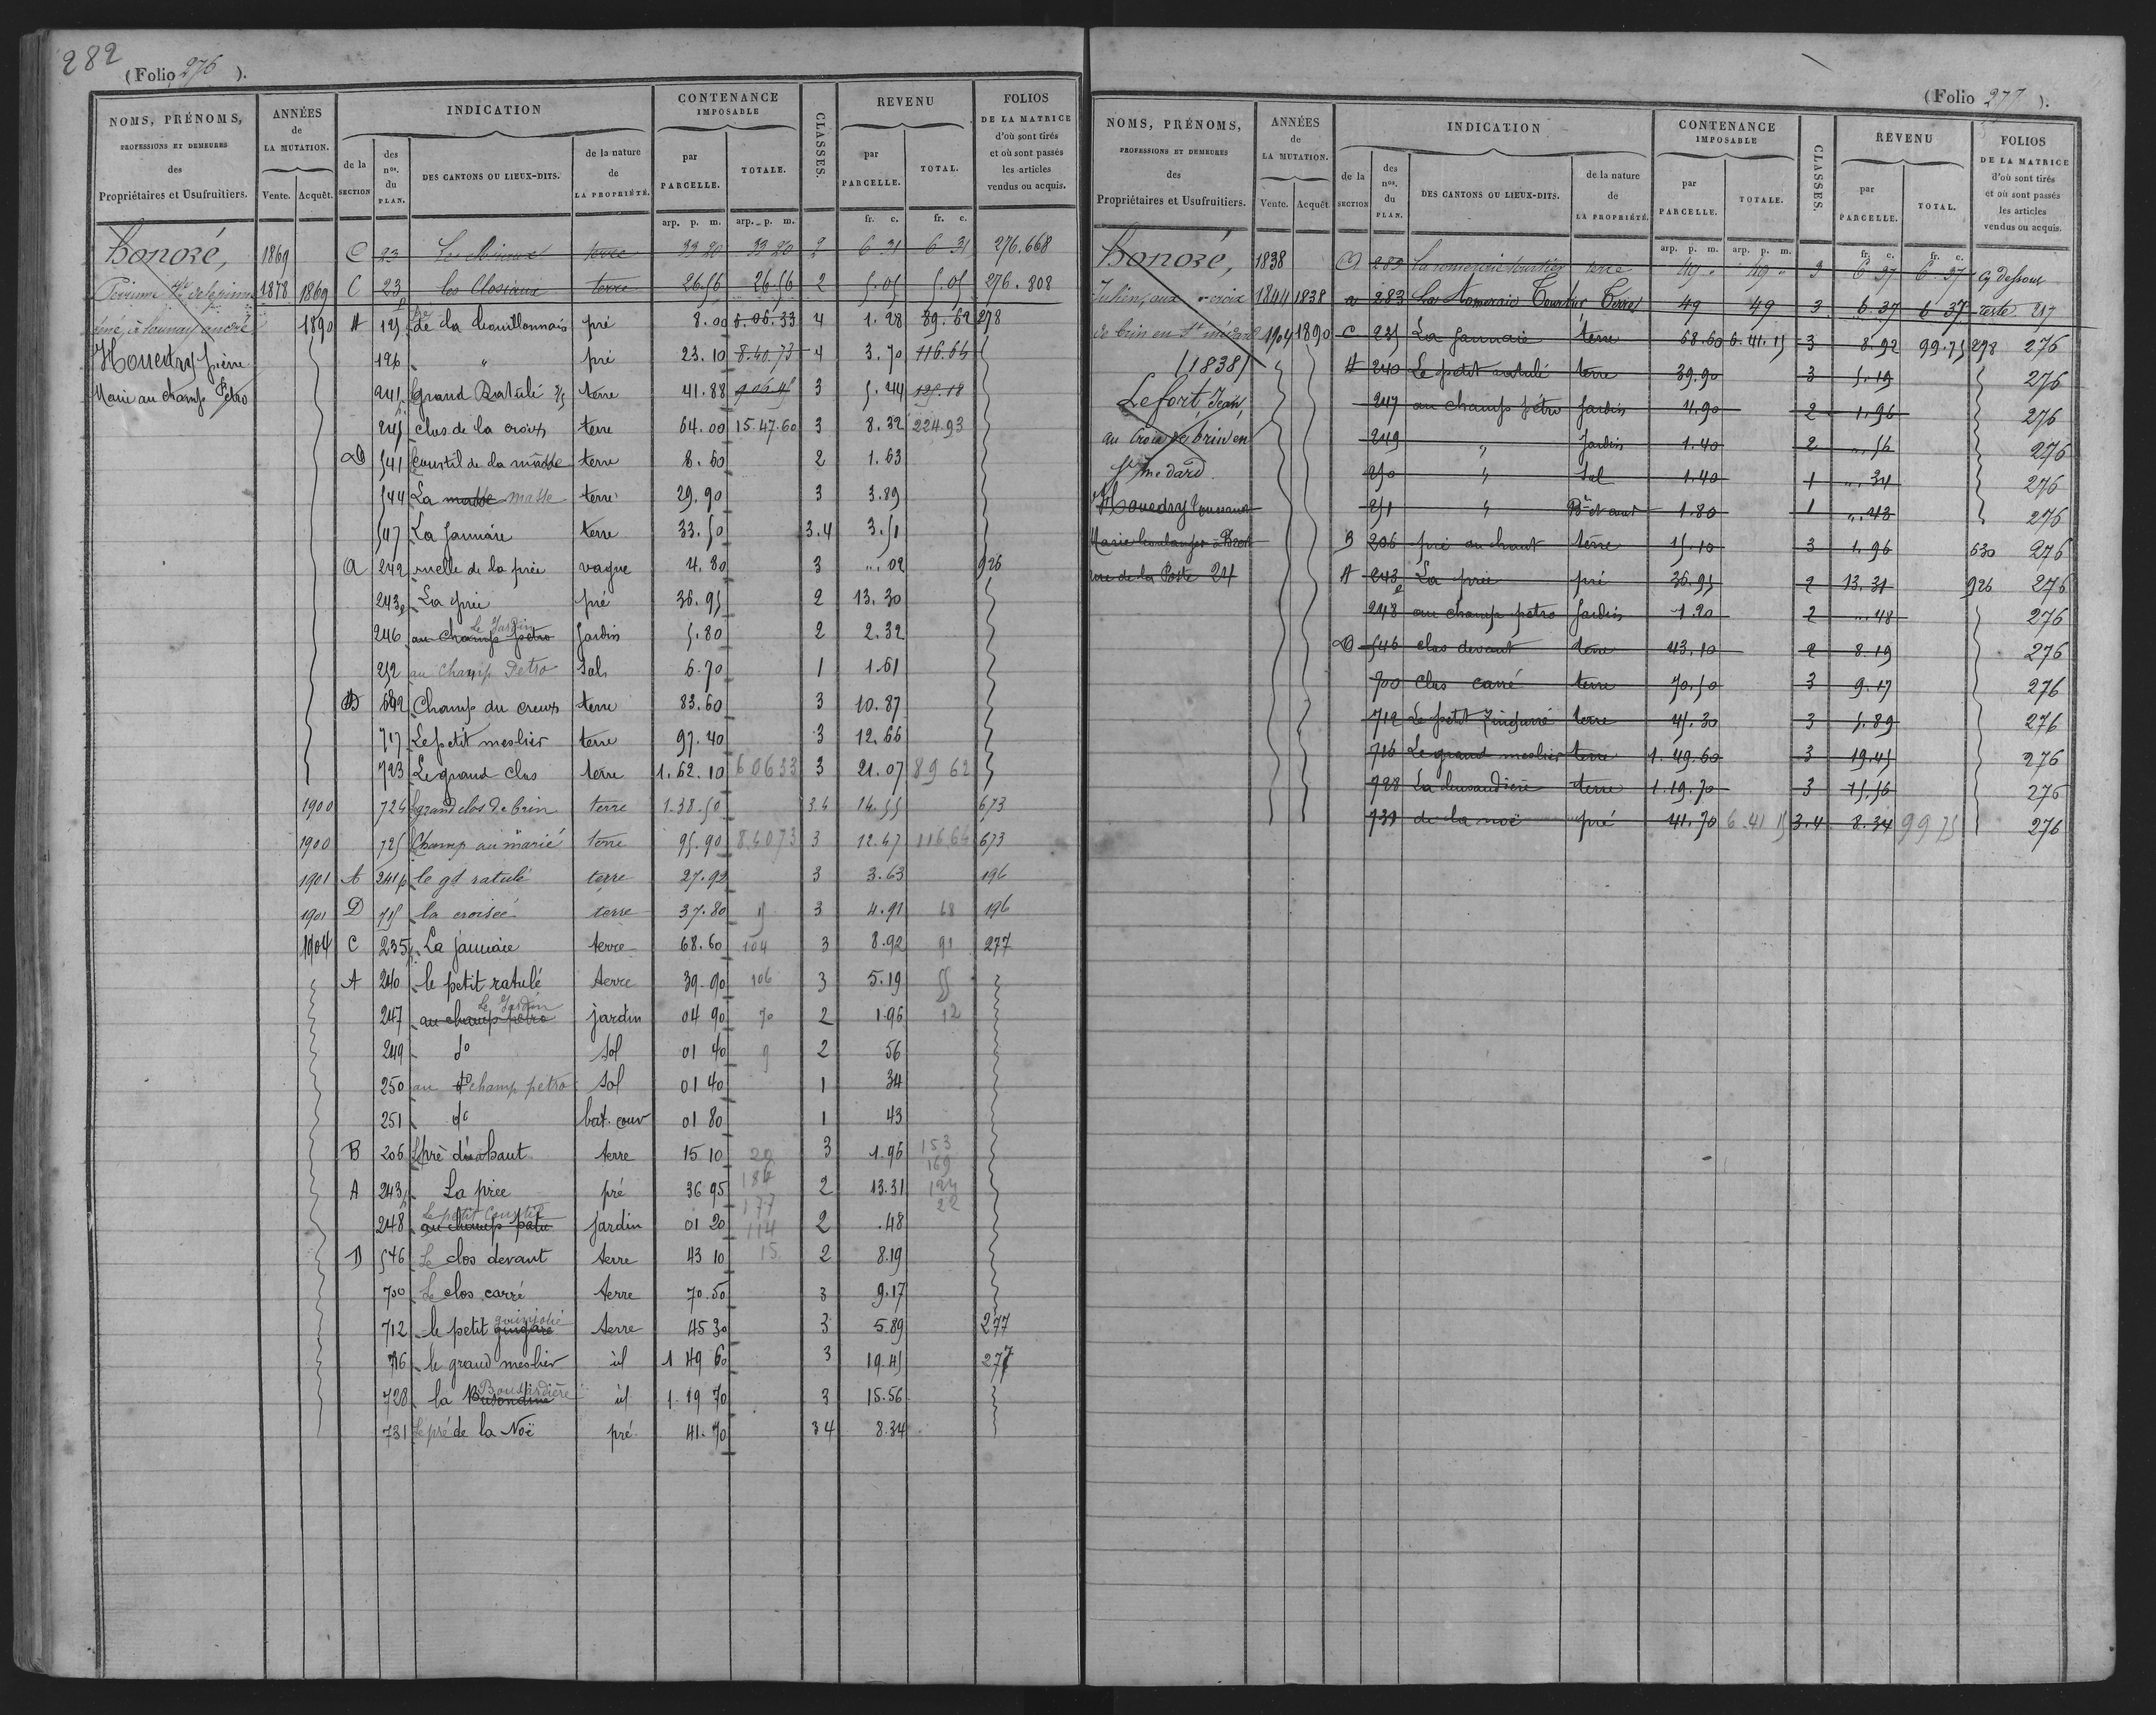 282
(Folio 276 ).
NOMS, PRÉNOMS, PROFESSIONS ET DEMEURES des Propriétaires et Usufruitiers.
ANNÉES de LA MUTATION. Vente. Acquêt.
INDICATION de la SECTION des nos. du PLAN. DES CANTONS OU LIEUX-DITS. de la nature de LA PROPRIÉTÉ.
CONTENANCE IMPOSABLE par PARCELLE. TOTALE.
CLASSES.
REVENU par PARCELLE. TOTAL.
FOLIOS DE LA MATRICE d'où sont tirés et où sont passés les articles vendus ou acquis.
arp. p. m. arp. p. m. fr. c. fr. c.
honoré, 1869 C 23 terre 33 20 33 20 2 6 31 6 31 276.668
1878 1869 C 23 les Closiaux terre 26.56 26.56 2 5.05 5.05 276.808
1890 A 125 pré 8.00 6.06.33 4 1.28 89.62 278
Houedry pierre 126 " pré 23.10 8.40.73 4 3.70 116.64
Marie au champ Petro 241 Grand Ratulé terre 41.88 3 5.44
245 clos de la croix terre 64.00 15.47.60 3 8.32 224.93
D 541 Courtil de la masse terre 8.60 2 1.63
544 La masse terre 29.90 3 3.89
547 La Jannaie terre 33.50 3.4 3.51
A 242 ruelle de la prée vague 4.80 3 ".02 926
243 La prée pré 36.95 2 13.30
246 au champ petro Le Jardin Jardin 5.80 2 2.32
252 au champ Petro Sol 6.70 1 1.61
D 692 Champ du creux terre 83.60 3 10.87
717 Le petit meslier terre 97.40 3 12.66
723 Le grand clos terre 1.62.10 6 06 33 3 21.07 89 62
1900 724 grand clos de brin terre 1.38.50 3.4 14.55 673
1900 725 Champ au marié terre 95.90 8.40 73 3 12.47 116 64 673
1901 A 241p le gd ratulé terre 27.92 3 3.63 196
1901 D 715 la croisée terre 37.80 15 3 4.91 68 196
1904 C 235 La jannaie terre 68.60 104 3 8.92 91 277
A 240 le petit ratulé terre 39.90 106 3 5.19 55
247 au champ petro Le Jardin jardin 04 90 70 2 1.96 12
249 do Sol 01 40 9 2 56
250 au champ petro Sol 01 40 1 34
251 do bat. couv 01 80 1 43
B 206 pré d'abaut terre 15 10 3 1.96 153
A 243 La prée pré 36 95 2 13.31
248 Le petit Courtil jardin 01 20 114 2 .48
D 546 Le clos devant terre 43 10 15 2 8.19
700 Le clos carré terre 70.50 3 9.17
712 le petit terre 45 30 3 5.89 277
716 le grand meslier id 1 49 60 3 19.45 277
728 la id 1.19 70 3 15.56
731 Le pré de la Noë pré 41.70 3 4 8.34
(Folio 277 ).
NOMS, PRÉNOMS, PROFESSIONS ET DEMEURES des Propriétaires et Usufruitiers.
ANNÉES de LA MUTATION. Vente. Acquêt
INDICATION de la SECTION des nos. du PLAN. DES CANTONS OU LIEUX-DITS. de la nature de LA PROPRIÉTÉ.
CONTENANCE IMPOSABLE par PARCELLE. TOTALE.
CLASSES.
REVENU par PARCELLE. TOTAL.
FOLIOS DE LA MATRICE d'où sont tirés et où sont passés les articles vendus ou acquis.
arp. p. m. arp. p. m. fr. c. fr. c.
honoré, 1838 283 terre 49 " 49 " 3 6 37 6 37 Cy dessous
Julien, aux croix 1844 1838 283 La Terre 49 49 3 6.37 6 37 reste 217
de brin en St médard 1904 1890 C 235 La Jannaie terre 68.60 6.41.15 3 8.92 99.75 278 276
(1838) A 240 Le petit ratulé terre 39.90 3 5.19 276
Lefort, Jean, 247 au champ pétro Jardin 4.90 2 1.96 276
au Croix de brin en 249 " Jardin 1.40 2 ".56 276
St Médard 250 " Sol 1.40 1 ".34 276
Houedry 251 " 1.80 1 ".43 276
Marie boulanger à Brest B 206 pré au haut terre 15.10 3 1.96 630 276
rue de la Poste 24 A 243 La prée pré 36.95 2 13.31 926 276
248 au champ petro Jardin 1.20 2 ".48 276
D 546 clos devant terre 43.10 2 8.19 276
700 clos carré terre 70.50 3 9.17 276
712 Le petit terre 45.30 3 5.89 276
716 Le grand meslier terre 1.49.60 3 19.45 276
728 terre 1.19.70 3 15.56 276
731 de la noë pré 41.70 6.41 15 3.4 8.34 99 75 276